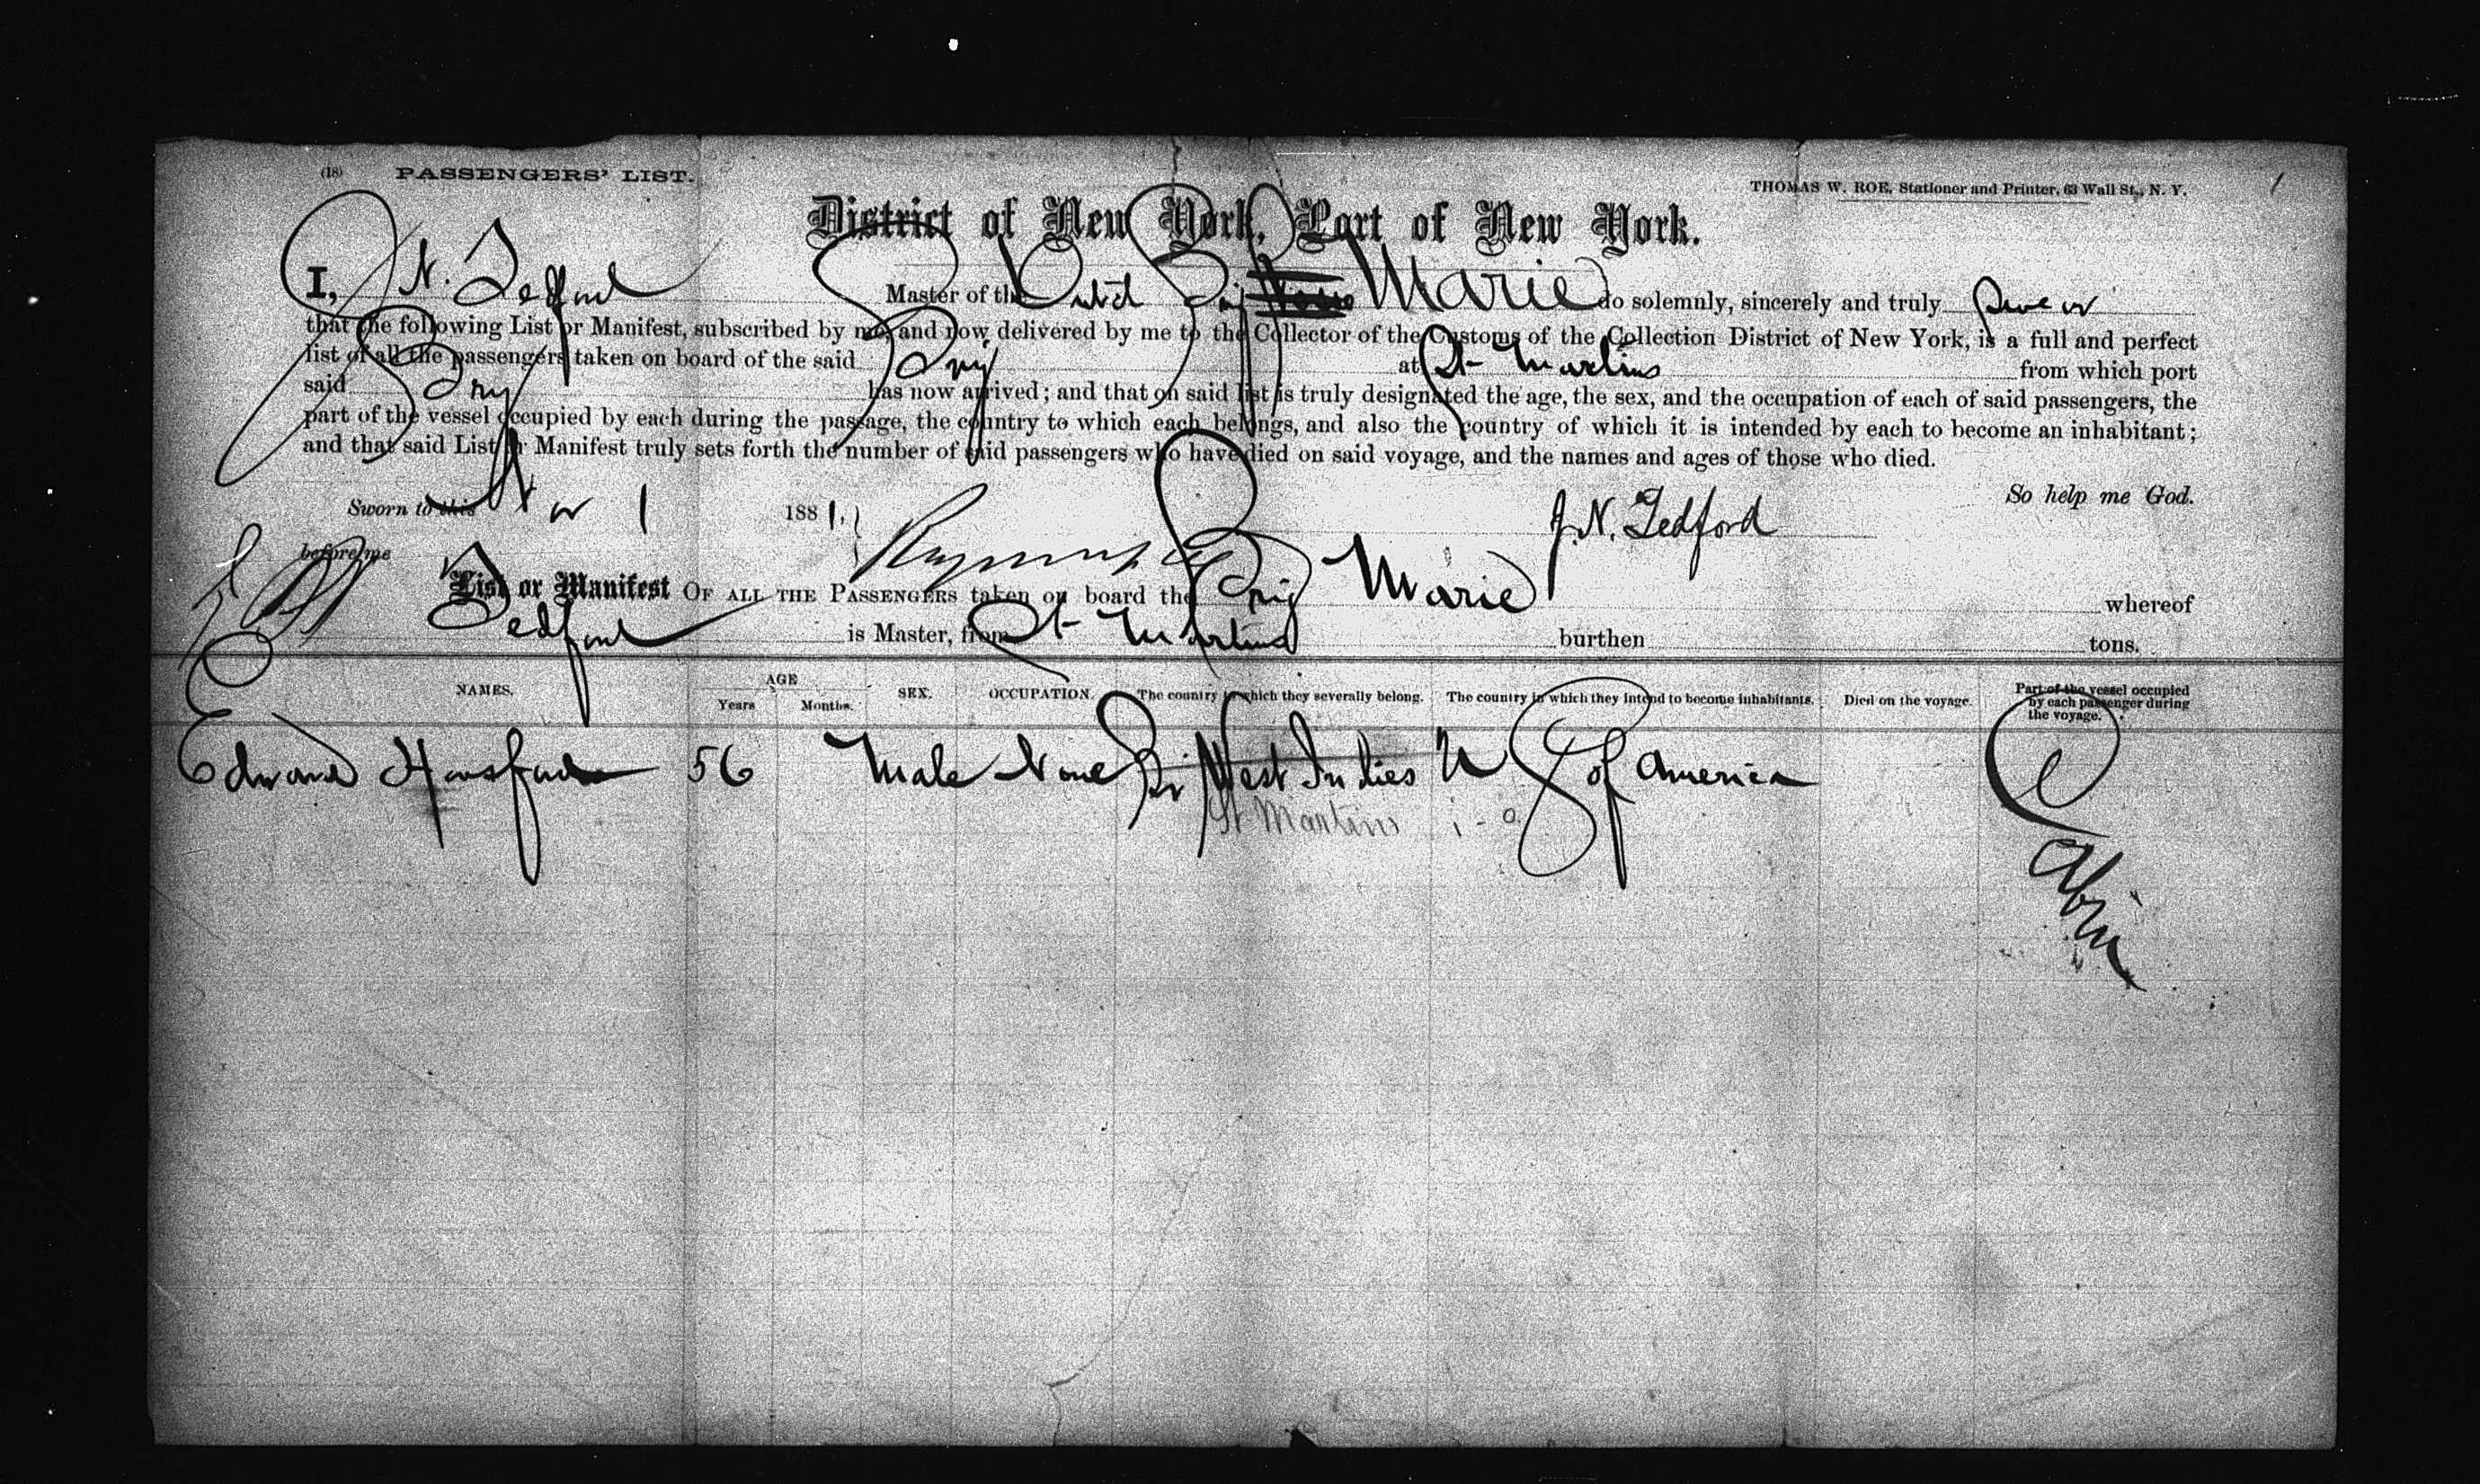 (18) PASSENGERS' LIST.
THOMAS W. ROE, Stationer and Printer, 63 Wall St., N. Y.
1
District of New York, Port of New York.
I, J. N. Tedford Master of the Brig Marie do solemnly, sincerely and truly swear
that the following List or Manifest, subscribed by me, and now delivered by me to the Collector of the Customs of the Collection District of New York, is a full and perfect
list of all the passengers taken on board of the said Brig at St Martins from which port
said Brig has now arrived; and that on said list is truly designated the age, the sex, and the occupation of each of said passengers, the
part of the vessel occupied by each during the passage, the country to which each belongs, and also the country of which it is intended by each to become an inhabitant;
and that said List or Manifest truly sets forth the number of said passengers who have died on said voyage, and the names and ages of those who died.
So help me God.
Sworn to this Nov 1 1881,
J. N. Tedford
before me
List or Manifest OF ALL THE PASSENGERS taken on board the Brig Marie whereof
Tedford is Master, from St Martins burthen tons.
NAMES. AGE Years Months. SEX. OCCUPATION. The country to which they severally belong. The country in which they intend to become inhabitants. Died on the voyage. Part of the vessel occupied by each passenger during the voyage.
Edward 56 Male None Br West Indies U S of America Cabin
St Martins